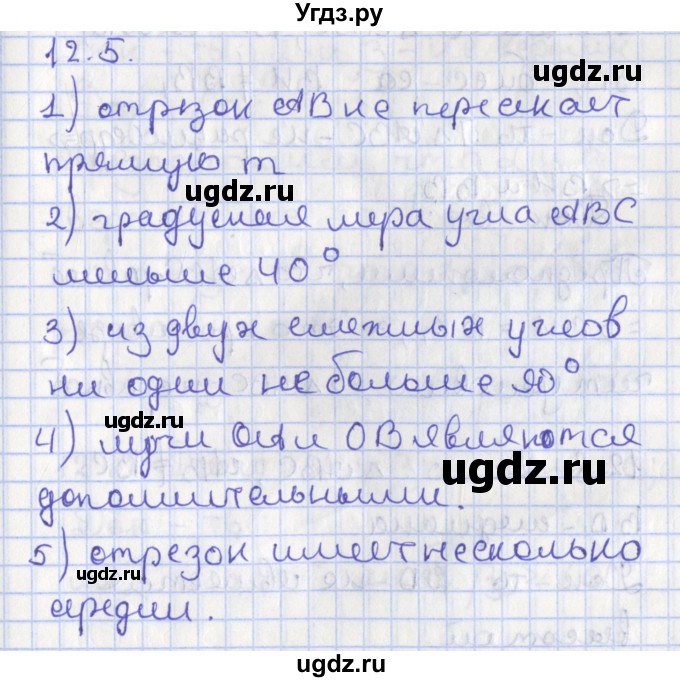 Угдз.ру
12.5.
1) отрезок АВ не пересекает
прямую m
ugdz.ru
ugdz.ru
2) градусная мера угла АВС
меньше 40°
3) из двух смежных углов
ни один не больше 90°
ugdz.ru
4) лучи ОА и ОВ являются
ugdz.ru
дополнительными.
5) отрезок имеет несколько
ugdz.ru
середин.
ugdz.ru
ugdz.ru